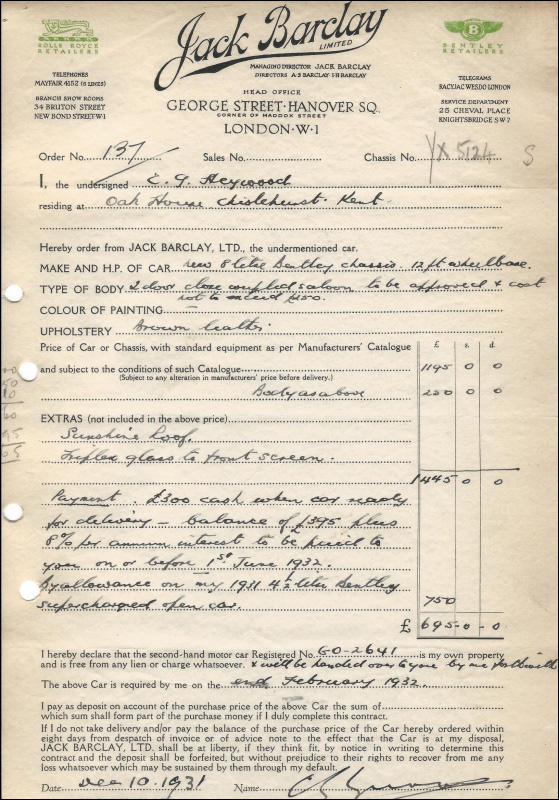 Jack Barclay
LIMITED
ROLLS ROYCE
RETAILERS
B
BENTLEY
RETAILERS
MANAGING DIRECTOR JACK BARCLAY
DIRECTORS A·S·BARCLAY·I·H·BARCLAY
TELEPHONES
MAYFAIR 4152 (5 LINES)
BRANCH SHOW ROOMS
34 BRUTON STREET
NEW BOND STREET W·1
HEAD OFFICE
GEORGE STREET·HANOVER SQ.
CORNER OF MADDOX STREET
LONDON·W·1
TELEGRAMS
RACYJAC WESDO LONDON
SERVICE DEPARTMENT
25 CHEVAL PLACE
KNIGHTSBRIDGE S W 7
Order No. 137 Sales No. Chassis No. YX 5124 S
I, the undersigned E. G. Heywood
residing at Oak House Chislehurst. Kent.
Hereby order from JACK BARCLAY, LTD., the undermentioned car.
MAKE AND H.P. OF CAR new 8 litre Bentley chassis. 12 ft wheelbase.
TYPE OF BODY 2 door close coupled saloon to be approved & cost
not to exceed £250.
COLOUR OF PAINTING —
UPHOLSTERY Brown leather
Price of Car or Chassis, with standard equipment as per Manufacturers' Catalogue £ s. d.
and subject to the conditions of such Catalogue 1195 0 0
(Subject to any alteration in manufacturers' price before delivery.)
Body as above 250 0 0
EXTRAS (not included in the above price)
Sunshine Roof.
Triplex glass to front screen.
1445 0 0
Payment. £300 cash when car ready
for delivery — balance of £395 plus
8% per annum interest to be paid to
you on or before 1st June 1932.
By allowance on my 1931 4½ litre Bentley
supercharged open car. 750
£ 695-0-0
I hereby declare that the second-hand motor car Registered No. GO-2641 is my own property
and is free from any lien or charge whatsoever. & will be handed over to you by me forthwith
The above Car is required by me on the end February 1932.
I pay as deposit on account of the purchase price of the above Car the sum of
which sum shall form part of the purchase money if I duly complete this contract.
If I do not take delivery and/or pay the balance of the purchase price of the Car hereby ordered within
eight days from despatch of invoice or of advice note to the effect that the Car is at my disposal,
JACK BARCLAY, LTD. shall be at liberty, if they think fit, by notice in writing to determine this
contract and the deposit shall be forfeited, but without prejudice to their rights to recover from me any
loss whatsoever which may be sustained by them through my default.
Date Dec 10. 1931 Name